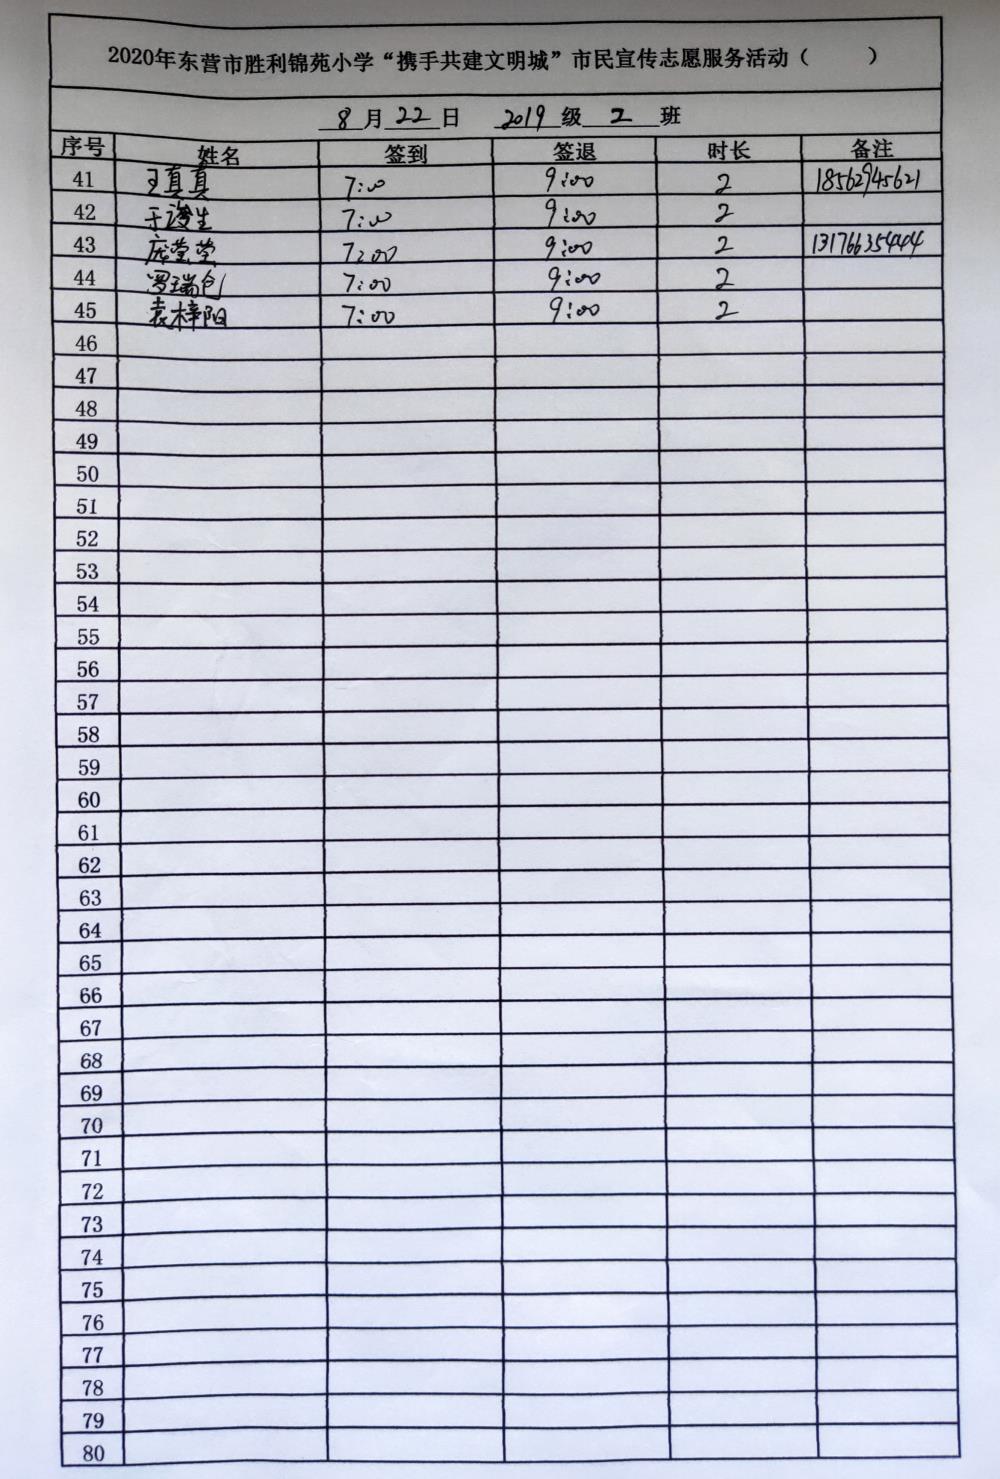 2020年东营市胜利锦苑小学“携手共建文明城”市民宣传志愿服务活动（ ）
8月22日 2019级2班
序号 姓名 签到 签退 时长 备注
41 王真真 7:00 9:00 2 18562945621
42 于浚生 7:00 9:00 2
43 庞莹莹 7:00 9:00 2 13176635444
44 罗瑞 7:00 9:00 2
45 袁梓阳 7:00 9:00 2
46
47
48
49
50
51
52
53
54
55
56
57
58
59
60
61
62
63
64
65
66
67
68
69
70
71
72
73
74
75
76
77
78
79
80